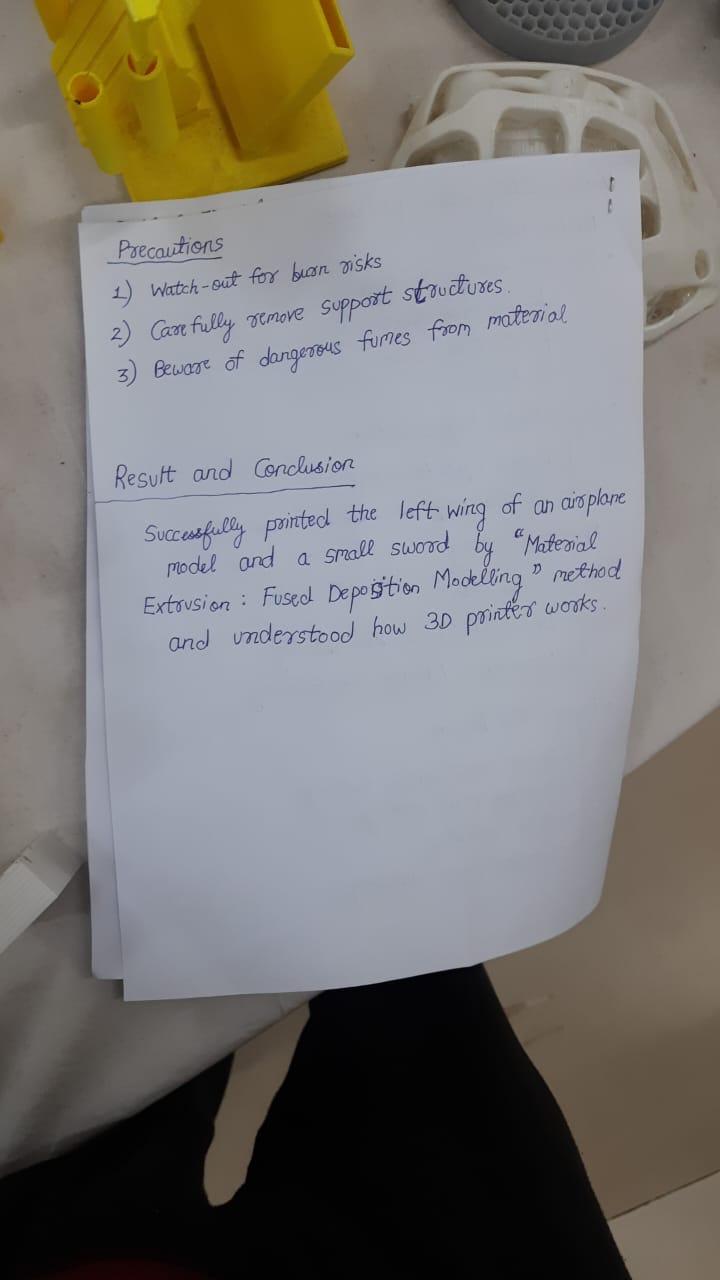 Precautions
1) Watch-out for burn risks
2) Carefully remove support structures.
3) Beware of dangerous fumes from material
Result and Conclusion
Successfully printed the left wing of an airplane
model and a small sword by "Material
Extrusion : Fused Deposition Modelling" method
and understood how 3D printer works.